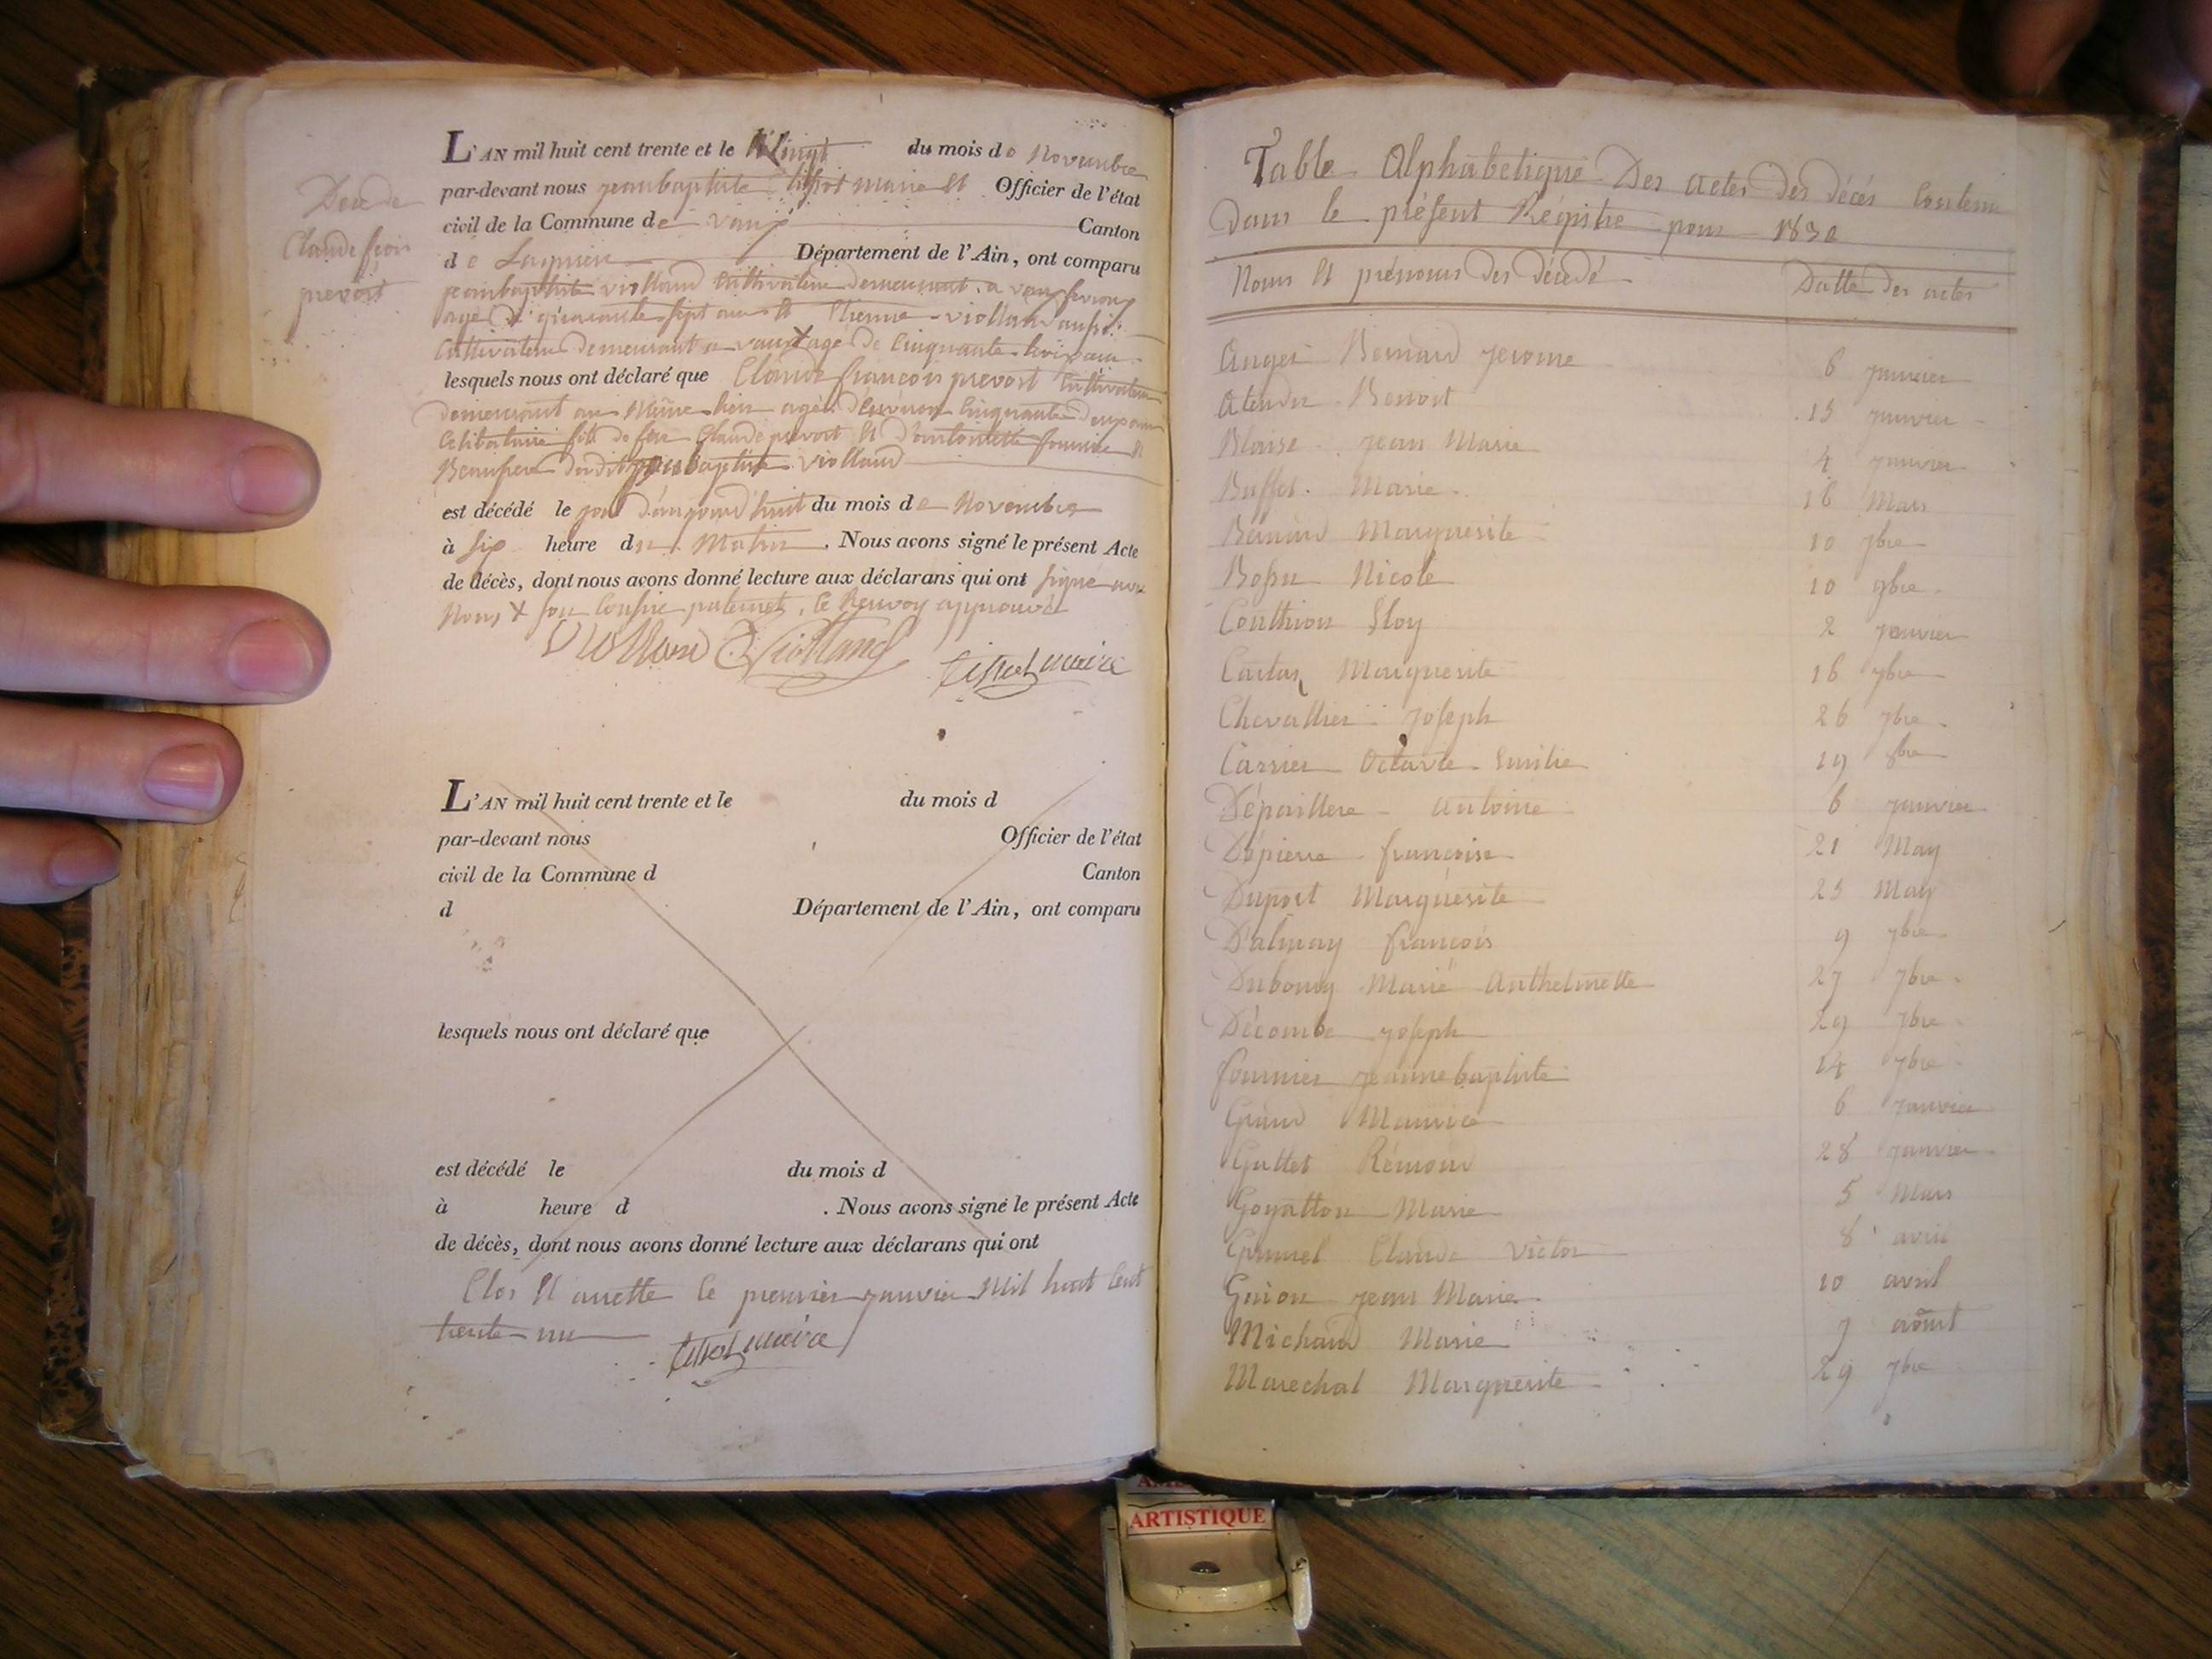 Décè de
Claude fcois
prevost
L'AN mil huit cent trente et le Vingt du mois de Novembre
par-devant nous jeanbaptiste tissot maire et Officier de l'état
civil de la Commune de vaux Canton
de Lagnieu Département de l'Ain, ont comparu
jeanbaptiste violland Cultivateur demeurant a vaux
agé de quarante sept ans et Etienne violland aussi
Cultivateur demeurant a vaux X agé de Cinquante trois ans
lesquels nous ont déclaré que Claude francois prevost Cultivateur
demeurant au Même lieu agé d'environ Cinquante deux ans
Celibataire fils de feu Claude prevost et d'antoinette fournier et
Beaufrere dudit jeanbaptiste violland
est décédé le jour d'aujourd'huit du mois de Novembre
à six heure du Matin. Nous avons signé le présent Acte
de décès, dont nous avons donné lecture aux déclarans qui ont signé avec
Nous X son Cousin paternel, le Renvoy approuvé
Violland E Violland tissot maire
L'AN mil huit cent trente et le du mois d
par-devant nous Officier de l'état
civil de la Commune d Canton
d Département de l'Ain, ont comparu
lesquels nous ont déclaré que
est décédé le du mois d
à heure d . Nous avons signé le présent Acte
de décès, dont nous avons donné lecture aux déclarans qui ont
Clos et arretté le premier janvier Mil huit Cent
trente un tissot maire
Table Alphabetique Des actes des décés Contenu
Dans le présent Régistre pour 1830
Noms et prénoms des décédé Datte des actes
Anger Bernard jerome 6 janvier
Benoit 15 janvier
Blaise jean Marie 4 janvier
Buffet Marie 16 Mars
Bernard Marguerite 10 7bre
Bossu Nicole 10 9bre
Couthion Eloy 2 janvier
Marguerite 16 7bre
Chevallier joseph 26 7bre
Carrier Octavie Emilie 19 8bre
Dépaillere antoine 6 janvier
Dépierre francoise 21 May
Duport Marguerite 25 May
Dalmay francois 9 7bre
Dubourg Marie Anthelmette 27 7bre
Décombe joseph 29 7bre
fournier jeanne baptiste 14 9bre
Grand Maurice 6 janvier
Guttet Rémond 28 janvier
Goyatton Marie 5 Mars
Claude Victor 8 avril
Guion jean Marie 10 avril
Michaud Marie 7 août
Marechal Marguerite 29 7bre
ARTISTIQUE